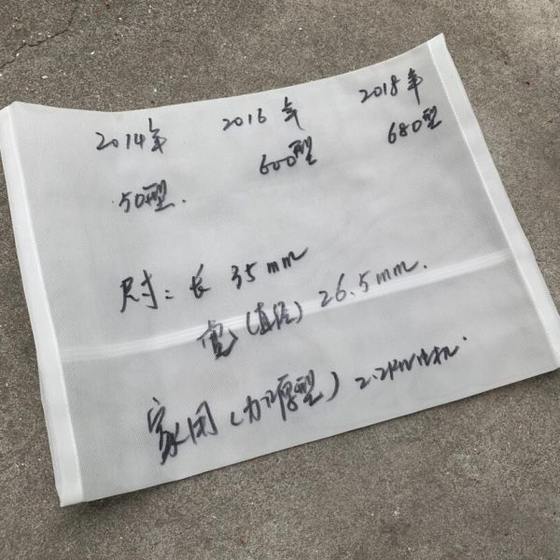 2014年 2016年 2018年
50型. 600型 680型
尺寸: 长 35mm
宽(直径) 26.5mm.
家用(加厚型) 2.2KW电机.